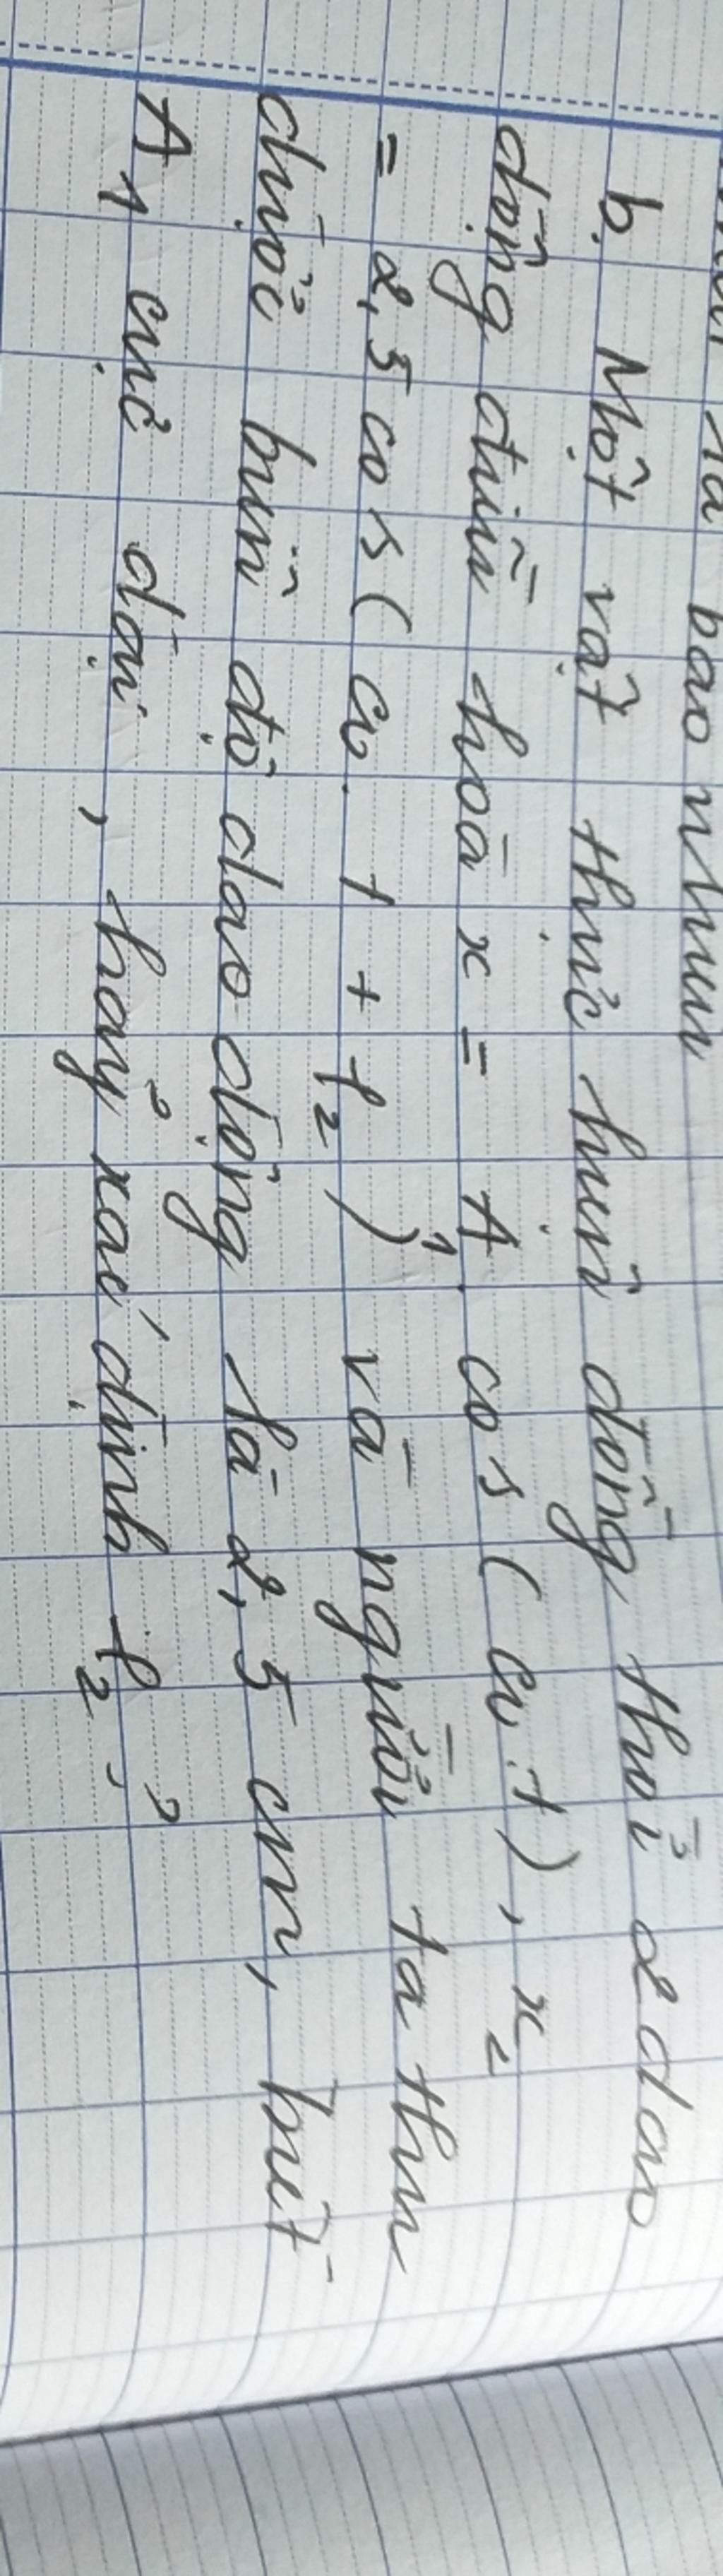 bao nhiêu
b. Một vật thực hiện đồng thời 2 dao
động điều hoà x = A₁. cos (ω.t), x₂
= 2,5 cos (ω.t + φ₂) và người ta thu
được biên độ dao động là 2,5 cm, biết
A₁ cực đại, hãy xác định φ₂ ?